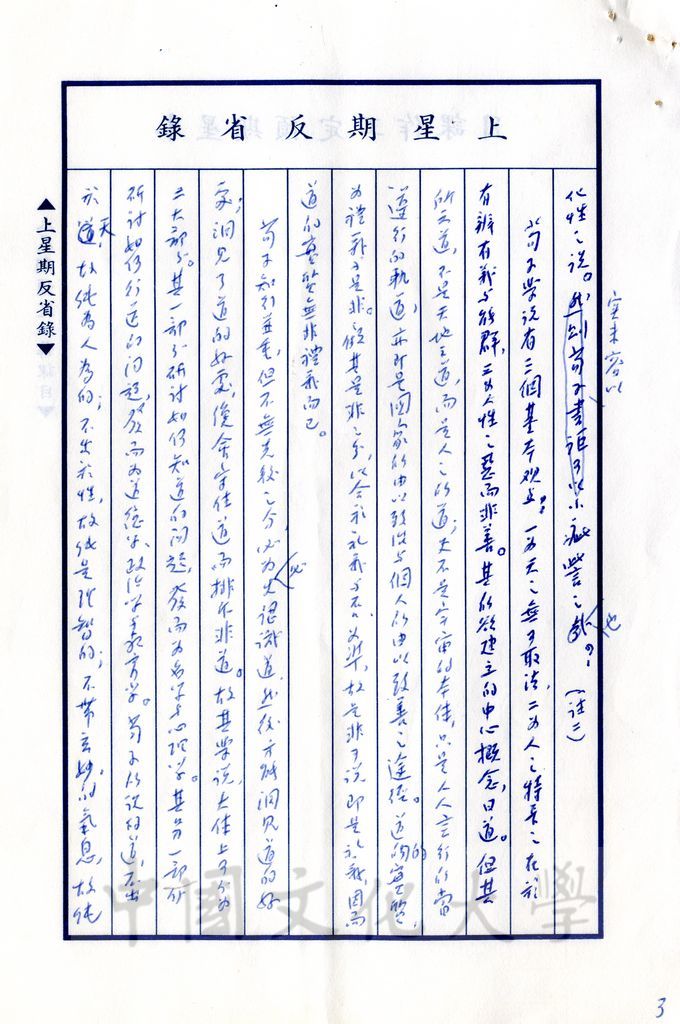 上星期反省錄
化性之說。然則荀子書詎可以小疵譬之哉？(註二)
實未容以
也
荀子學說有三個基本觀點：一為天之無可取法，二為人之特長之在於
有辨有義與能群，三為人性之惡而非善。其所欲建立的中心概念，曰道。但其
所云道，不是天地之道，而是人之所道；又不是宇宙的本體，只是人人言行的當
遵行的軌道，亦即是國家所由以致治與個人所由以致善之途徑。道的實質，
為禮義與是非。
道的實質無非禮義而已。
荀子知行並重，但不無先後之分，必先認識道，然後方能洞見道的好
必
處；洞見了道的好處，後會守住道而排斥非道。故其學說，大體上可分為
二大部分。其一部分研討如何知道的問題，發而為名學與心理學。其另一部分
研討如何行道的問題，發而為道德學、政治學與教育學。荀子所說的道，不出
於天道，故純為人為的；不出於性，故純是理智的；不帶玄妙的氣息，故純
▲上星期反省錄▼
中國文化大學
3